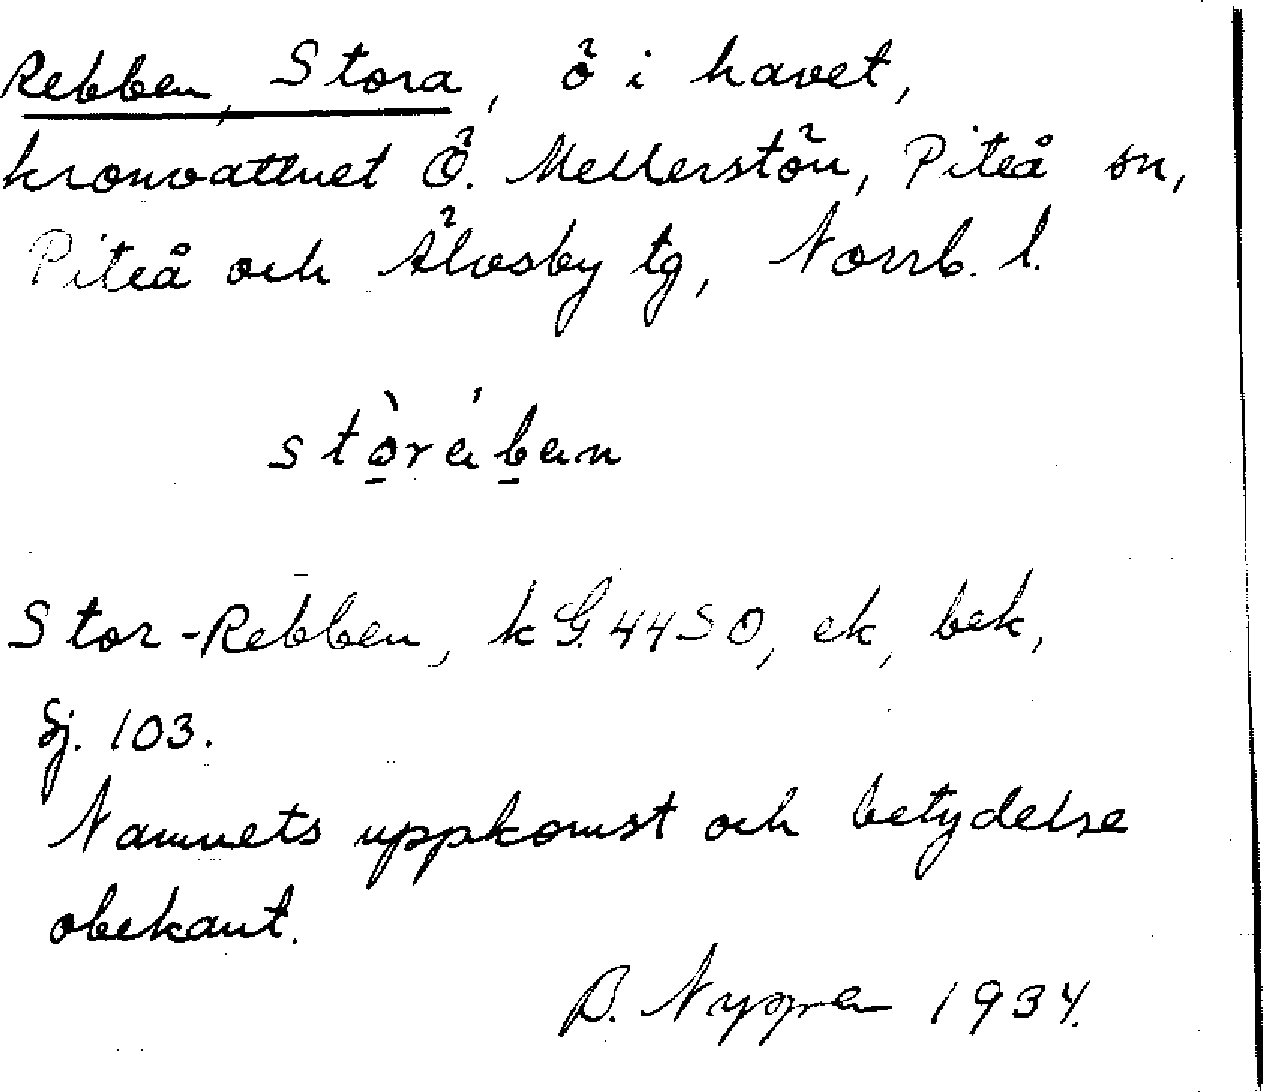 Rebben, Stora, ö i havet,
kronvattnet Ö. Mellerstön, Piteå sn,
Piteå och Älvsby tg, Norrb. l.
stòrában
Stor-Rebben, k G. 4450, ek, bek,
Sj. 103.
Namnets uppkomst och betydelse
obekant.
B. Nyppa 1934.